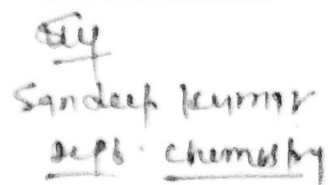 By
Sandeep kumar
Dept. Chemistry